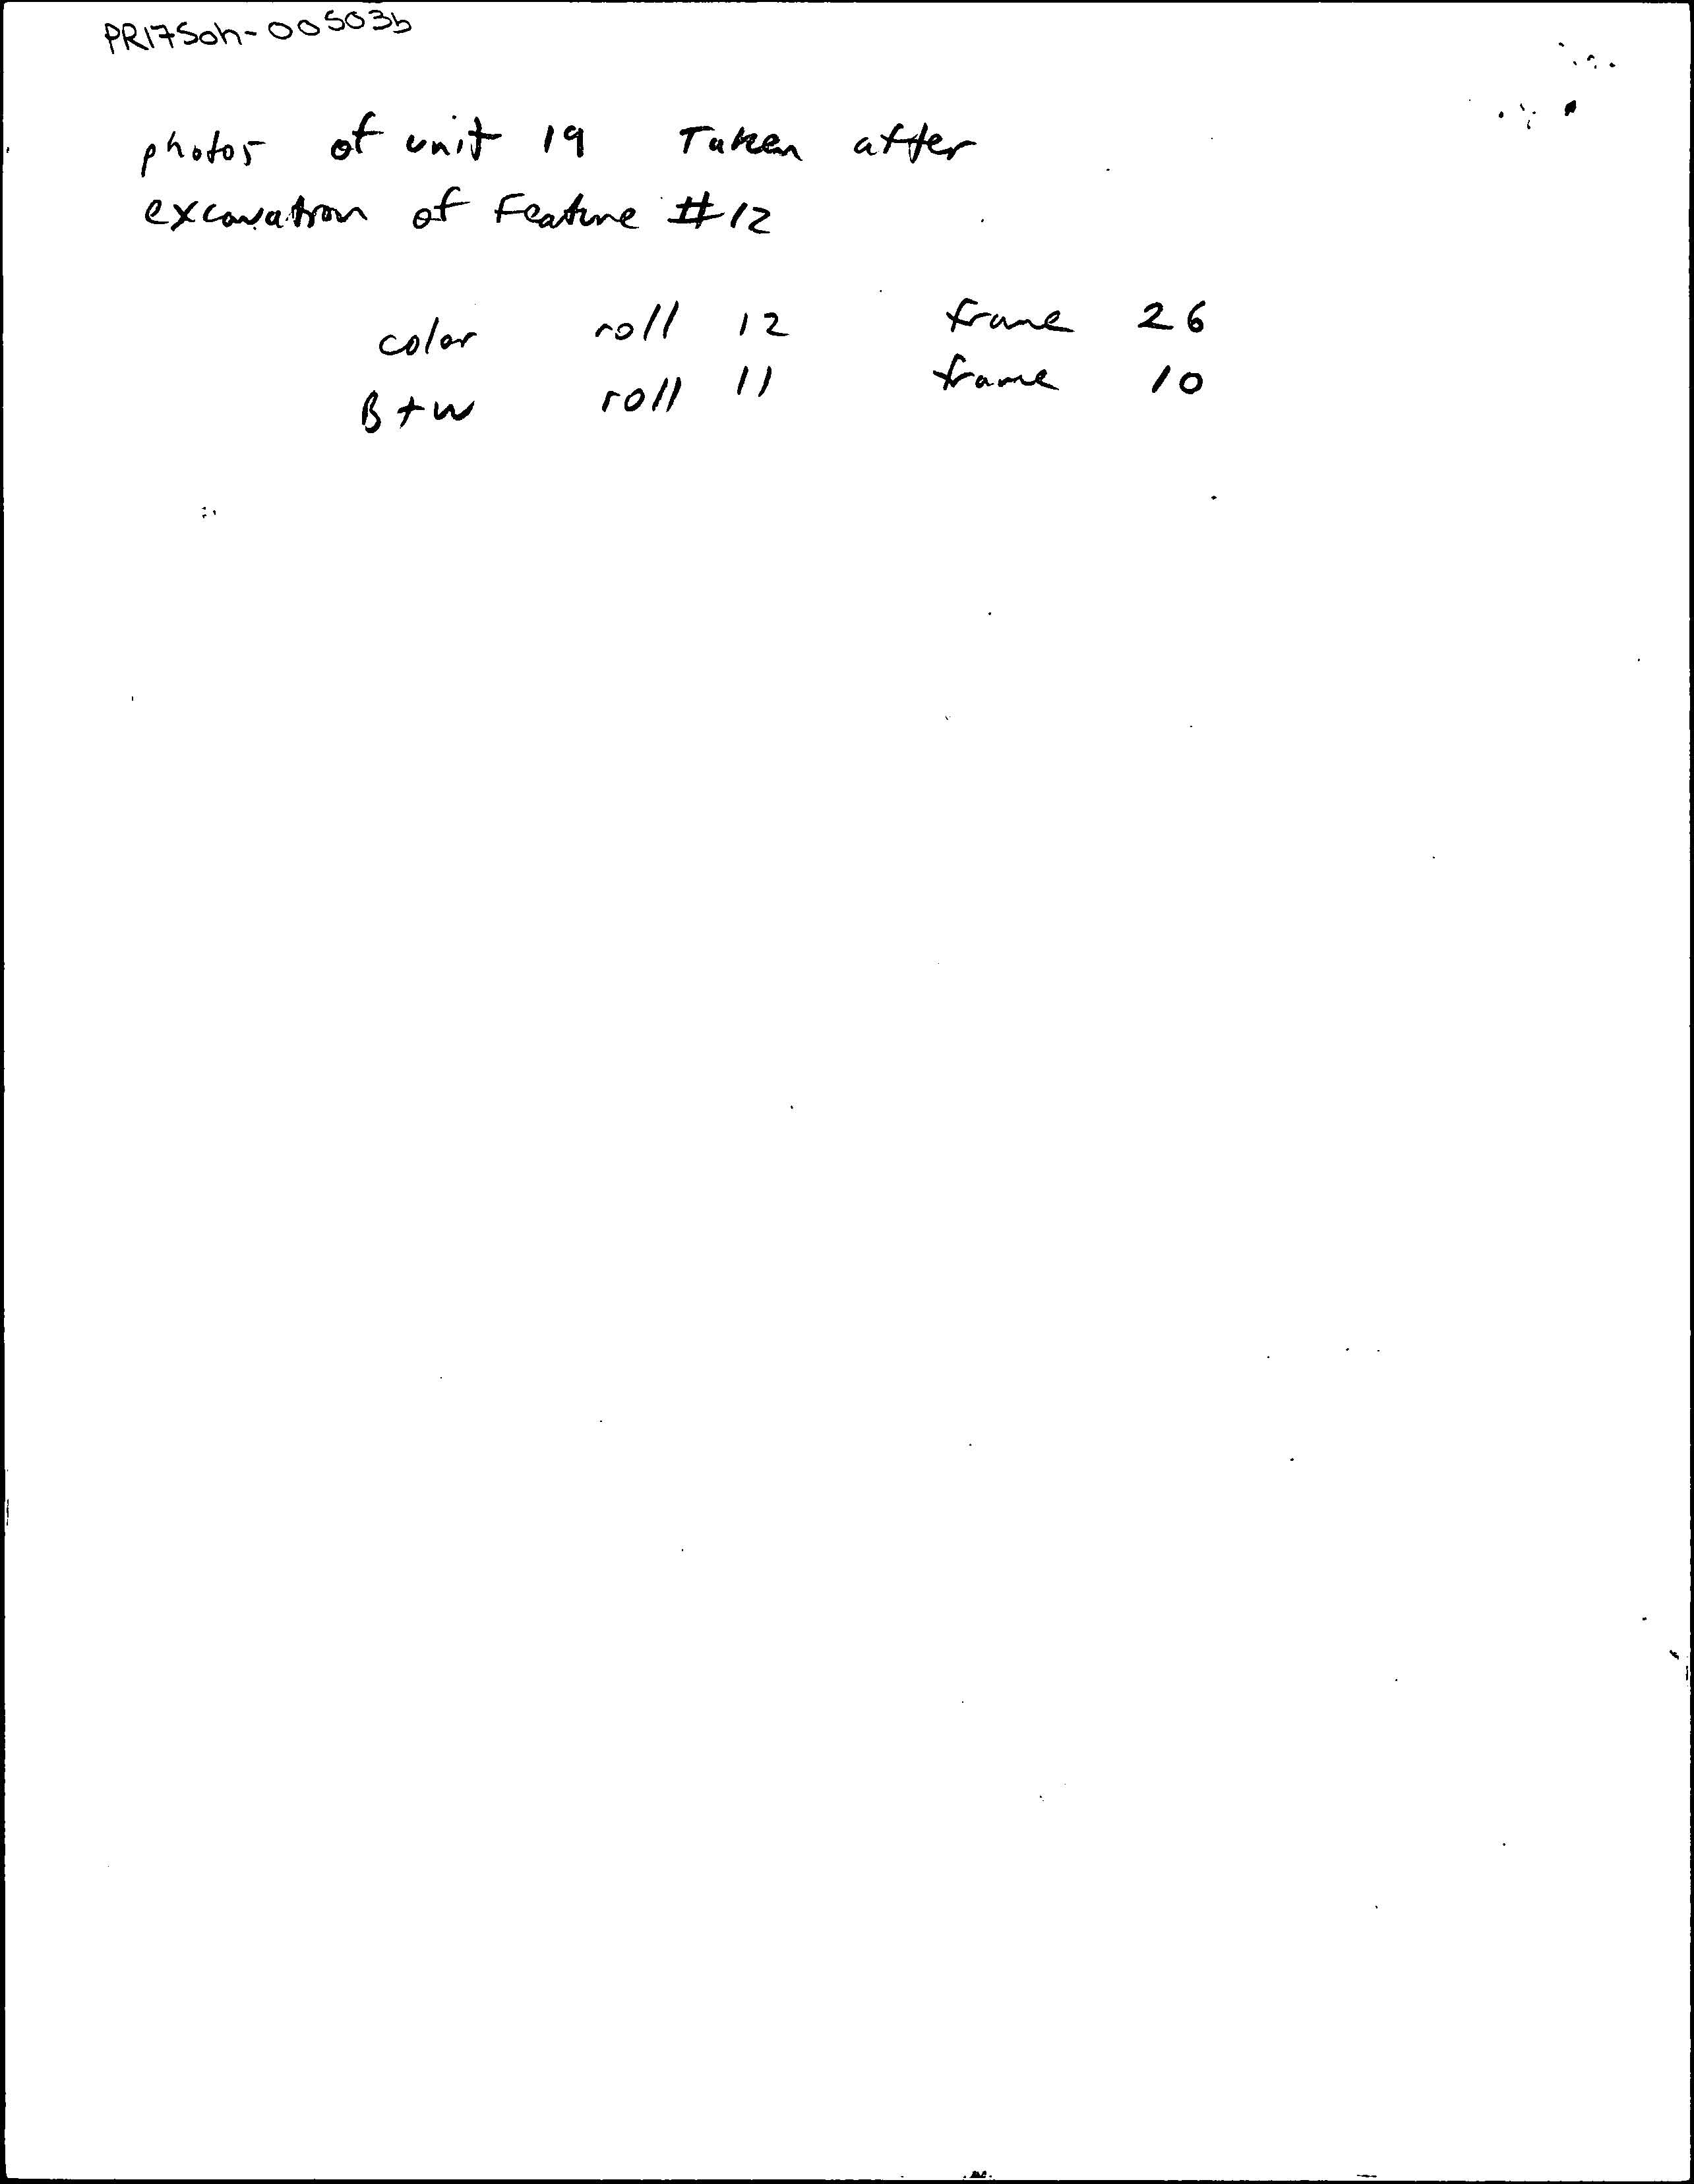 PR175oh-00503b
photos of unit 19 Taken after
excavation of Feature #12
color roll 12 frame 26
B+W roll 11 frame 10